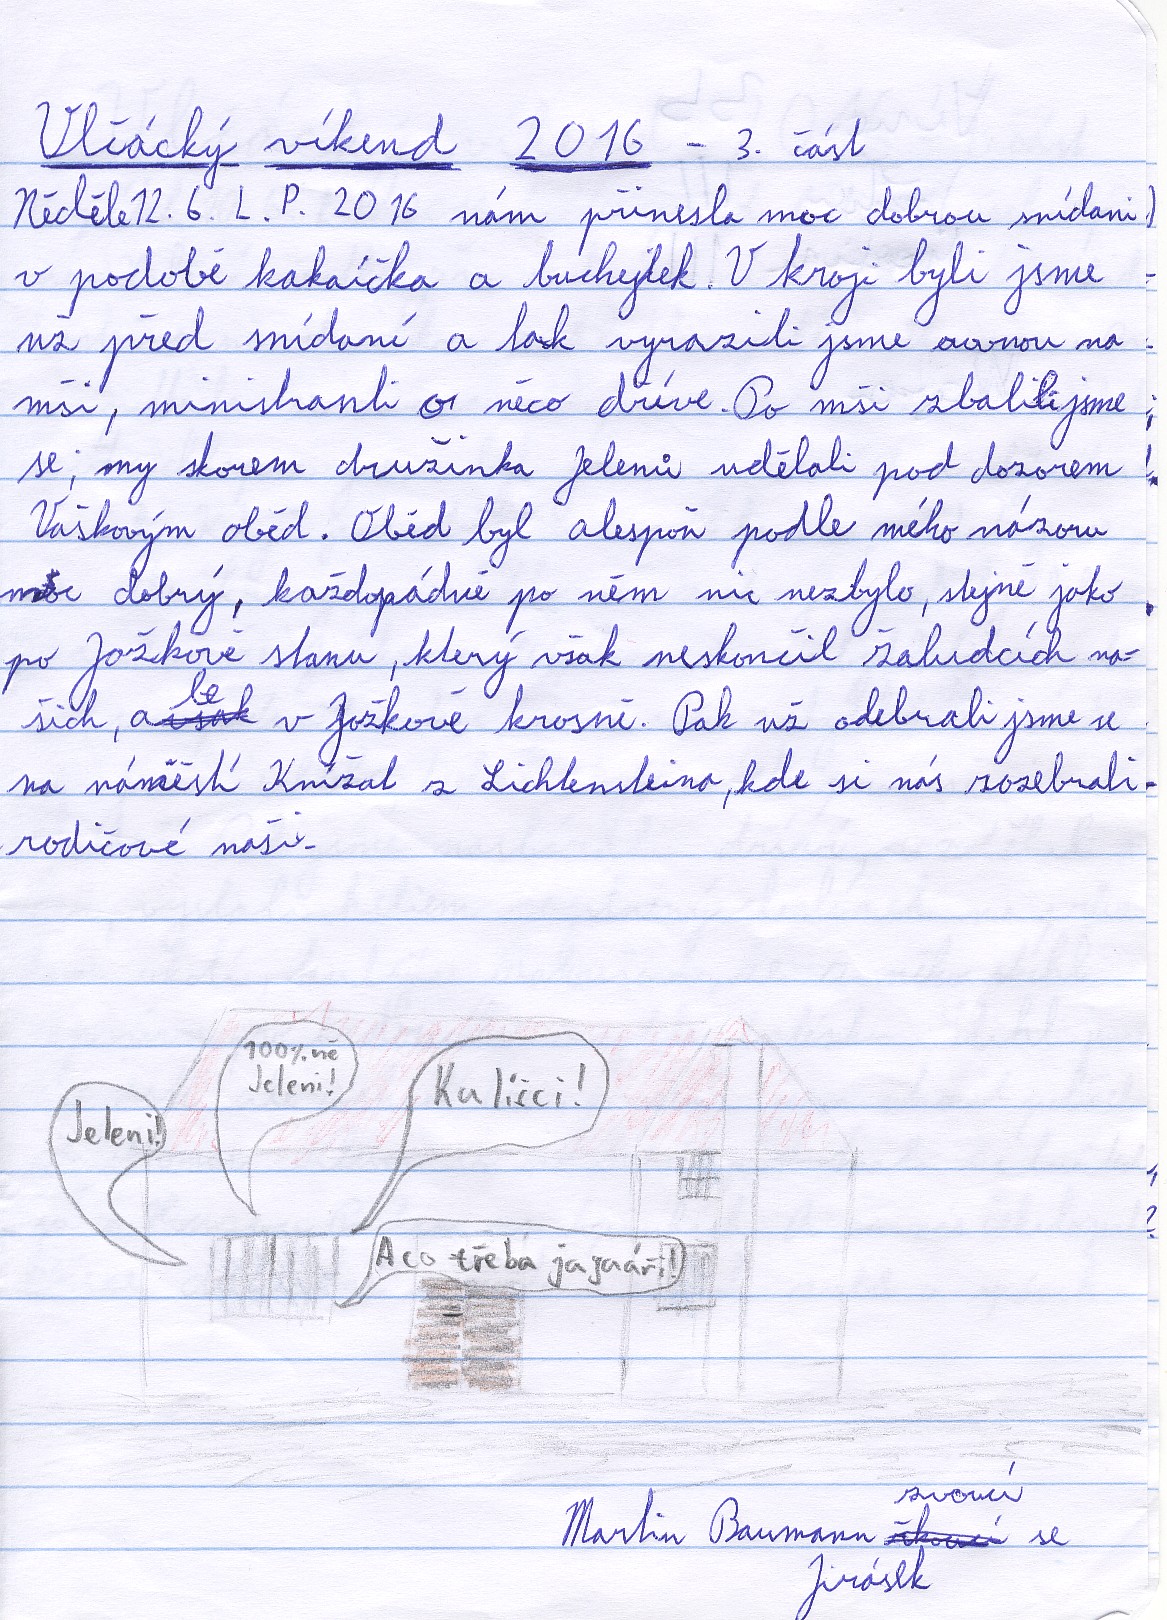 Vlčácký víkend 2016 - 3. část
Něděle 12. 6. L. P. 2016 nám přinesla moc dobrou snídani
v podobě kakaíčka a buchejtek. V kroji byli jsme
už před snídaní a tak vyrazili jsme na
mši, ministranti o něco dříve. Po mši zbalili jsme
se; my skorem družinka Jelenů udělali pod dozorem
Vaškovým oběd. Oběd byl alespoň podle mého názoru
moc dobrý, každopádně po něm nic nezbylo, stejně jako
po Jožkově stanu, který však neskončil žaludcích na-
šich, a
le
v Jožkově krosně. Pak už odebrali jsme se
na náměstí Knížat z Lichtensteina, kde si nás rozebrali
rodičové naši.
100%ně
Jeleni!
Kulíšci!
Jeleni!
A co třeba jaguáři!
zvoucí
Martin Baumann se
Jirásek